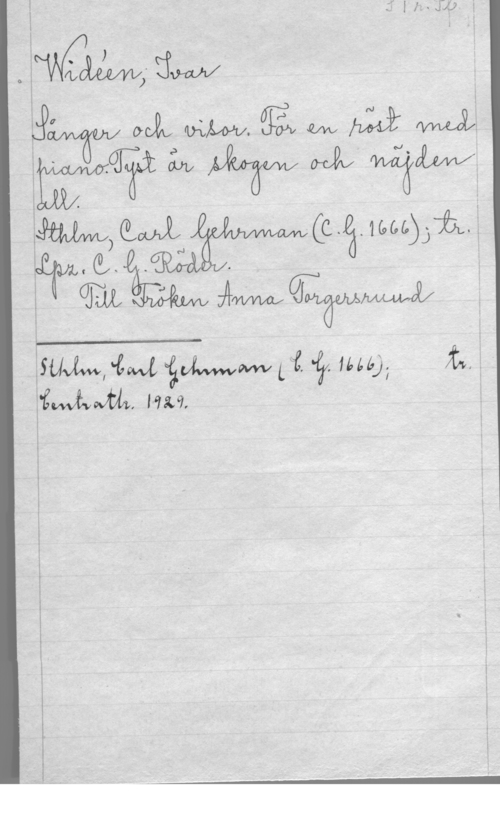 Widéen, Ivar
Sånger och visor. För en röst med
piano. Tyst är skogen och näjden
all.
Sthlm, Carl Gehrman (C.G. 1666); tr.
Lpz. C. G. Röder.
Till Fröken Anna Torgersruud
Sthlm, Carl Gehrman (C. G. 1666); tr.
Centraltr. 1929.